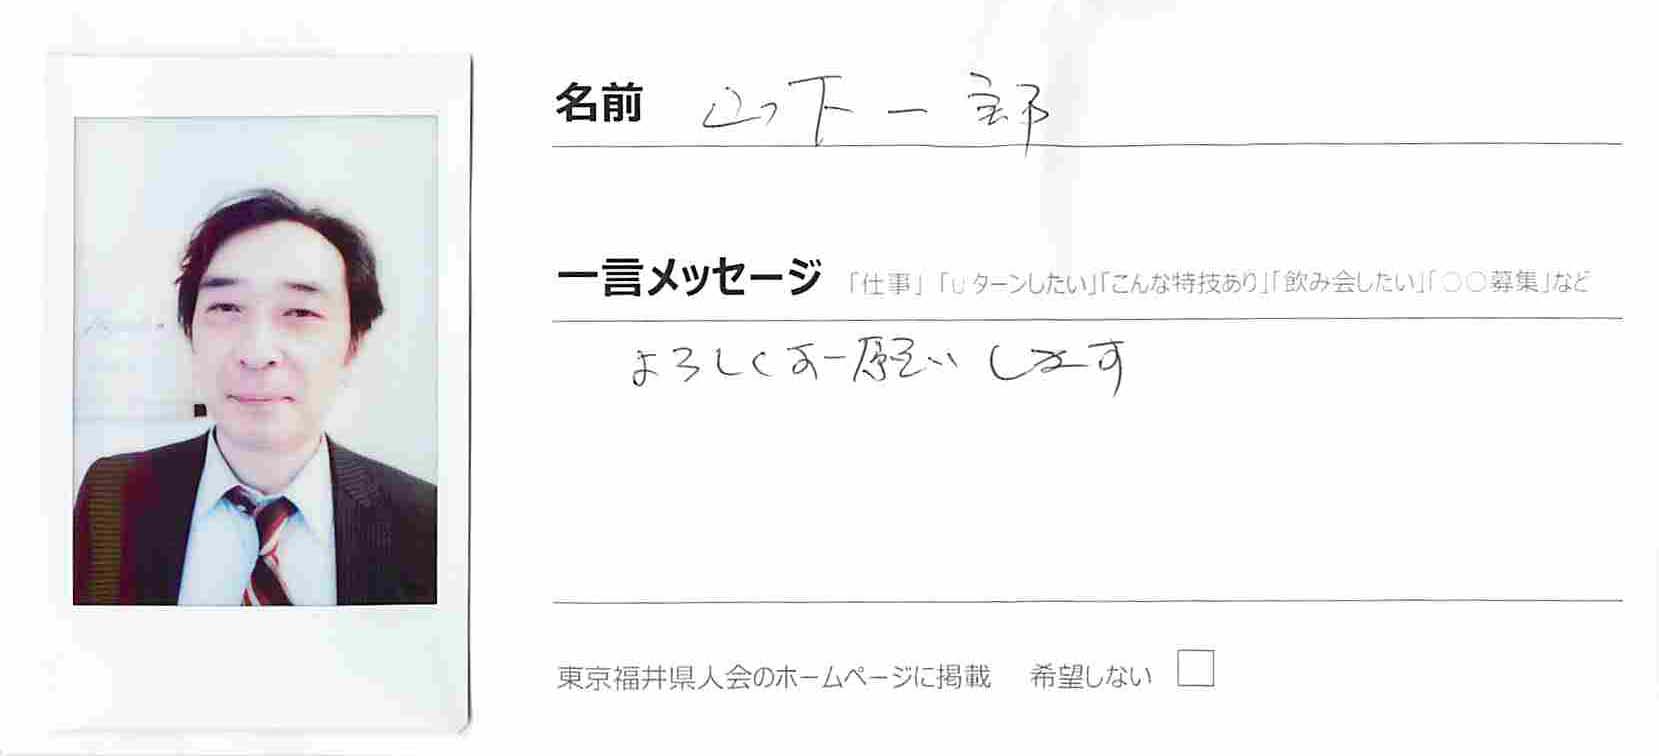 名前 山下一郎
一言メッセージ 「仕事」「Uターンしたい」「こんな特技あり」「飲み会したい」「○○募集」など
よろしくお願いします
東京福井県人会のホームページに掲載 希望しない □